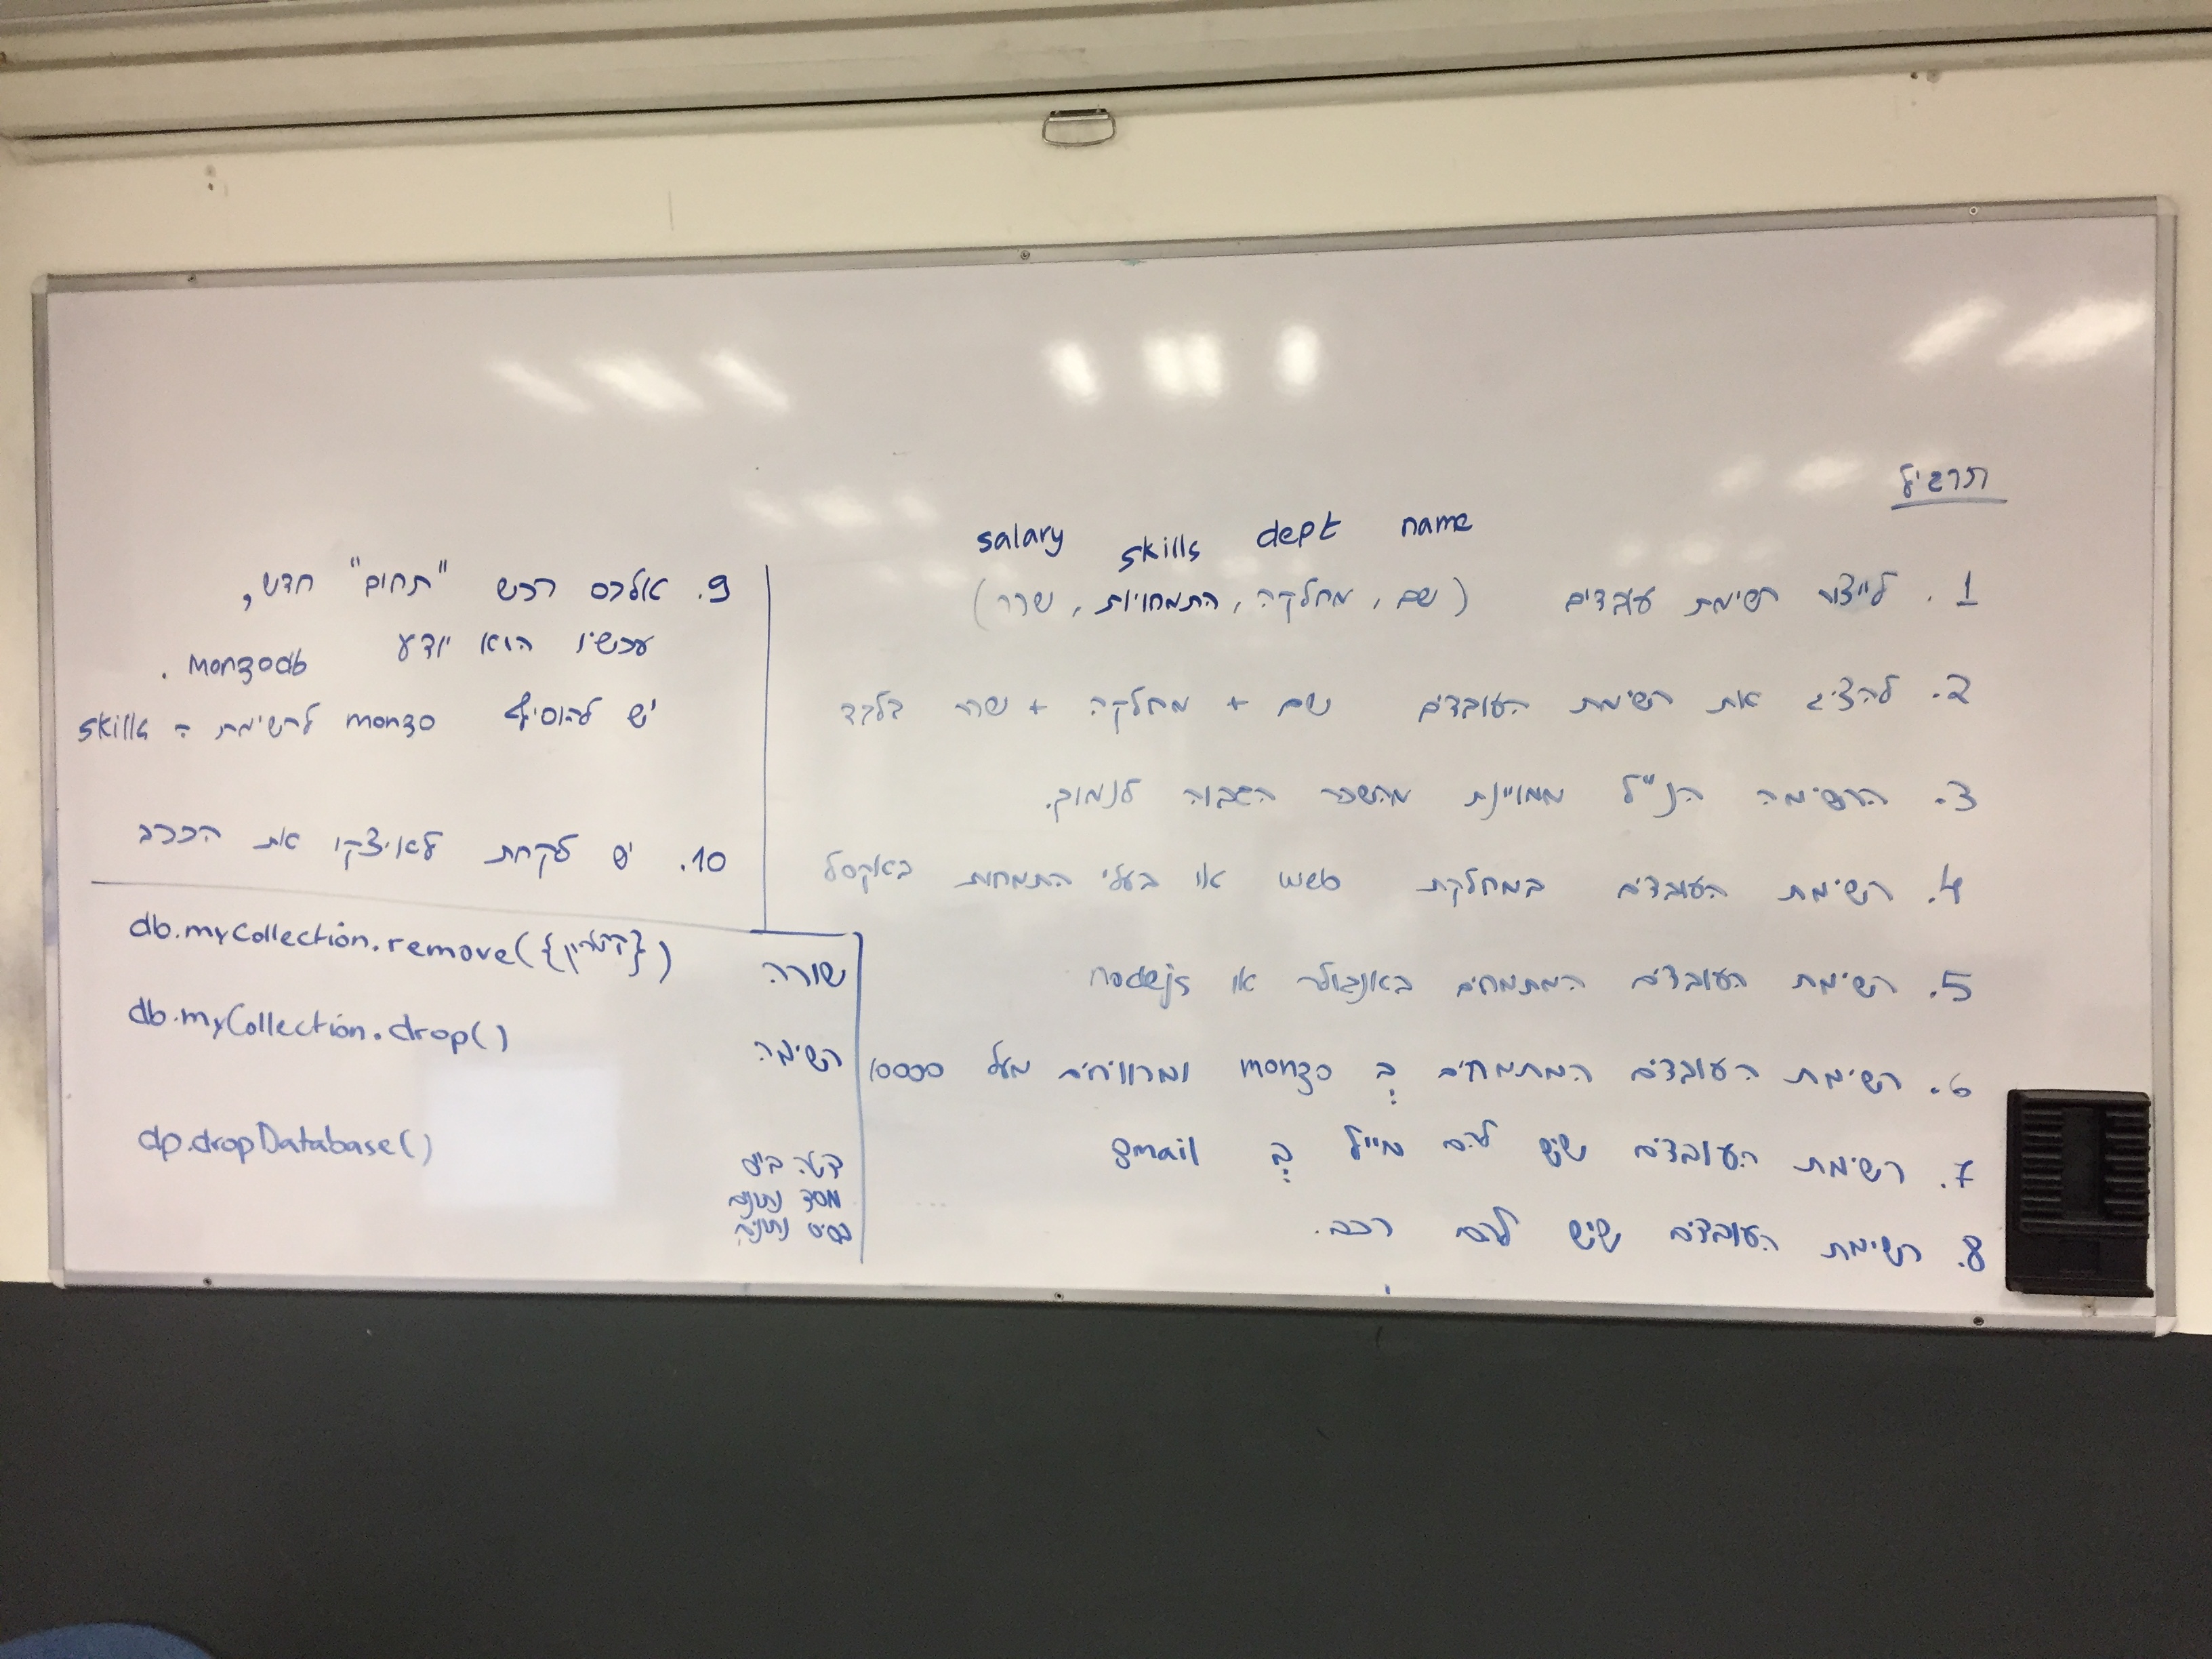 תרגיל
name dept skills salary
1. לייצור רשימת עובדים (שם, מחלקה, התמחויות, שכר)
2. להציג את רשימת העובדים שם + מחלקה + שכר בלבד
3. הרשימה הנ"ל ממויינת מהשכר הגבוה לנמוך.
4. רשימת העובדים במחלקת web או בעלי התמחות באקסל
5. רשימת העובדים המתמחים באנגולר או nodejs
6. רשימת העובדים המתמחים בְּ mongo ומרוויחים מעל 10000
7. רשימת העובדים שיש להם מייל בְּ gmail
8. רשימת העובדים שיש להם רכב.
9. אלכס רכש "תחום" חדש,
עכשיו הוא יודע mongodb.
יש להוסיף mongo לרשימת ה = skills
10. יש לקחת לאיציק את הרכב
שורה db.myCollection.remove({})
רשימה db.myCollection.drop()
דטה בייס dp.dropDatabase()
מסד נתונים
בסיס נתונים